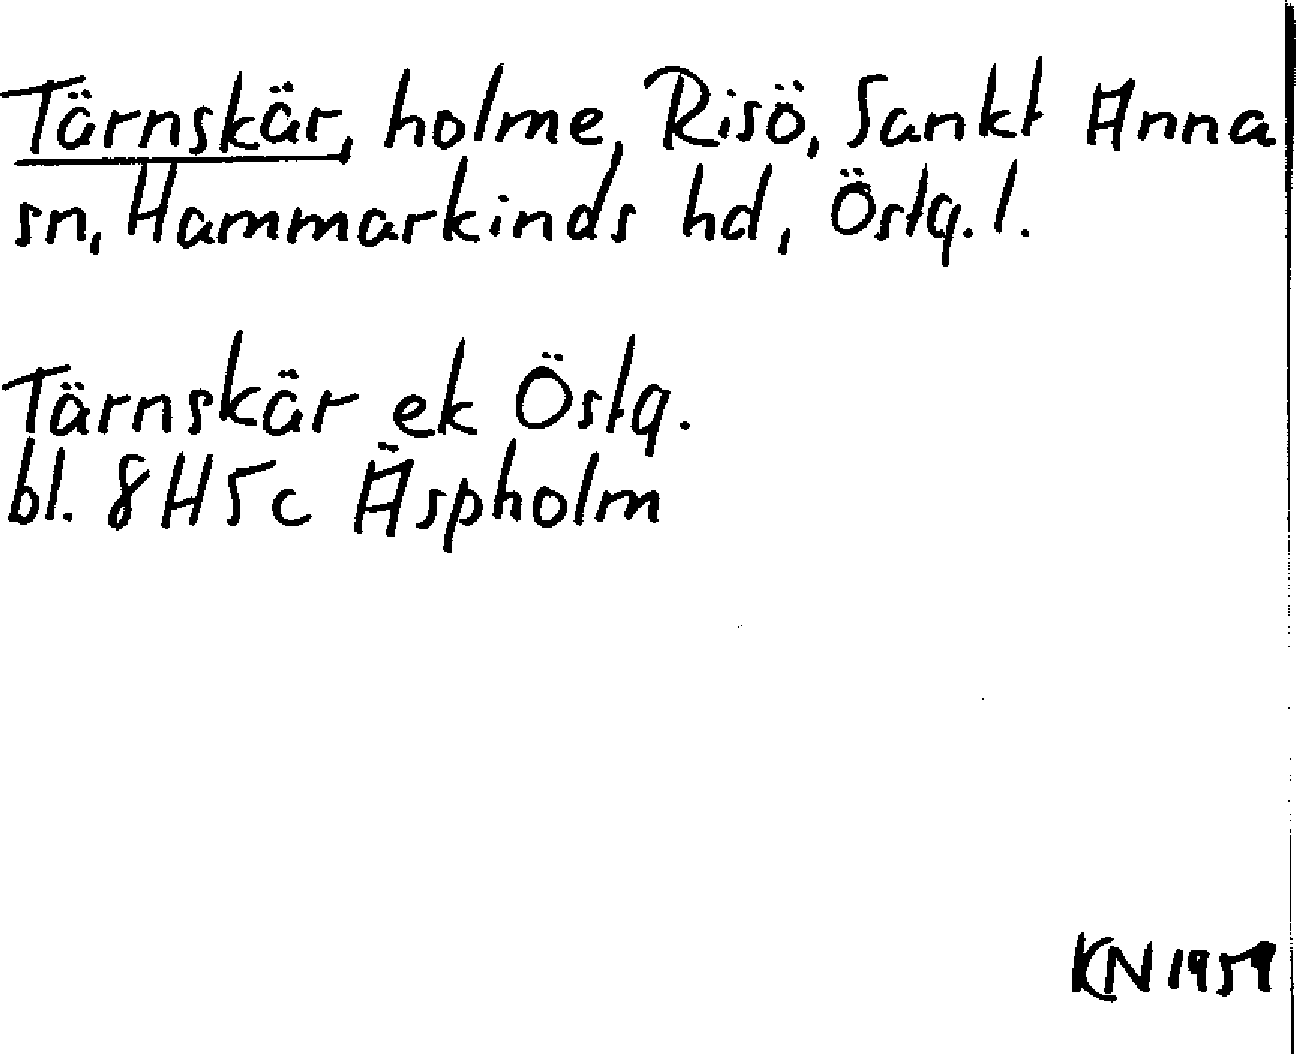 Tärnskär, holme, Risö, Sankt Anna
sn, Hammarkinds hd, Östg. l.
Tärnskär ek Östg.
bl. 8H5c Äspholm
KN 1959